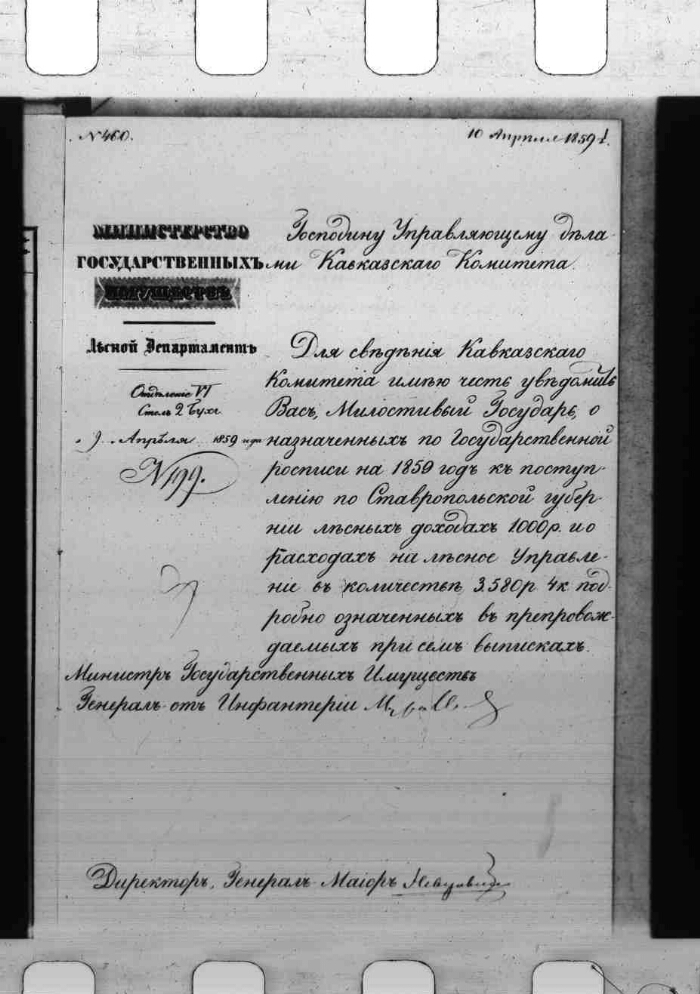 № 460.
10 Апрѣля 1859 г.
МИНИСТЕРСТВО
ГОСУДАРСТВЕННЫХЪ
ИМУЩЕСТВЪ
Лѣсной Департаментъ
Отдѣленіе VI
Столъ 2 Бухг.
9 Апрѣля 1859 года
№ 199.
Господину Управляющему дѣла-
ми Кавказскаго Комитета.
Для свѣдѣнія Кавказскаго
Комитета имѣю честь увѣдомить
Васъ, Милостивый Государь, о
назначенныхъ по Государственной
росписи на 1859 годъ къ поступ-
ленію по Ставропольской губер-
ніи лѣсныхъ доходахъ 1000 р. и о
расходахъ на лѣсное Управле-
ніе въ количествѣ 3.580 р 4 к под-
робно означенныхъ въ препровож-
даемыхъ при семъ выпискахъ.
Министръ Государственныхъ Имуществъ
Генералъ отъ Инфантеріи
Директоръ, Генералъ-Маіоръ